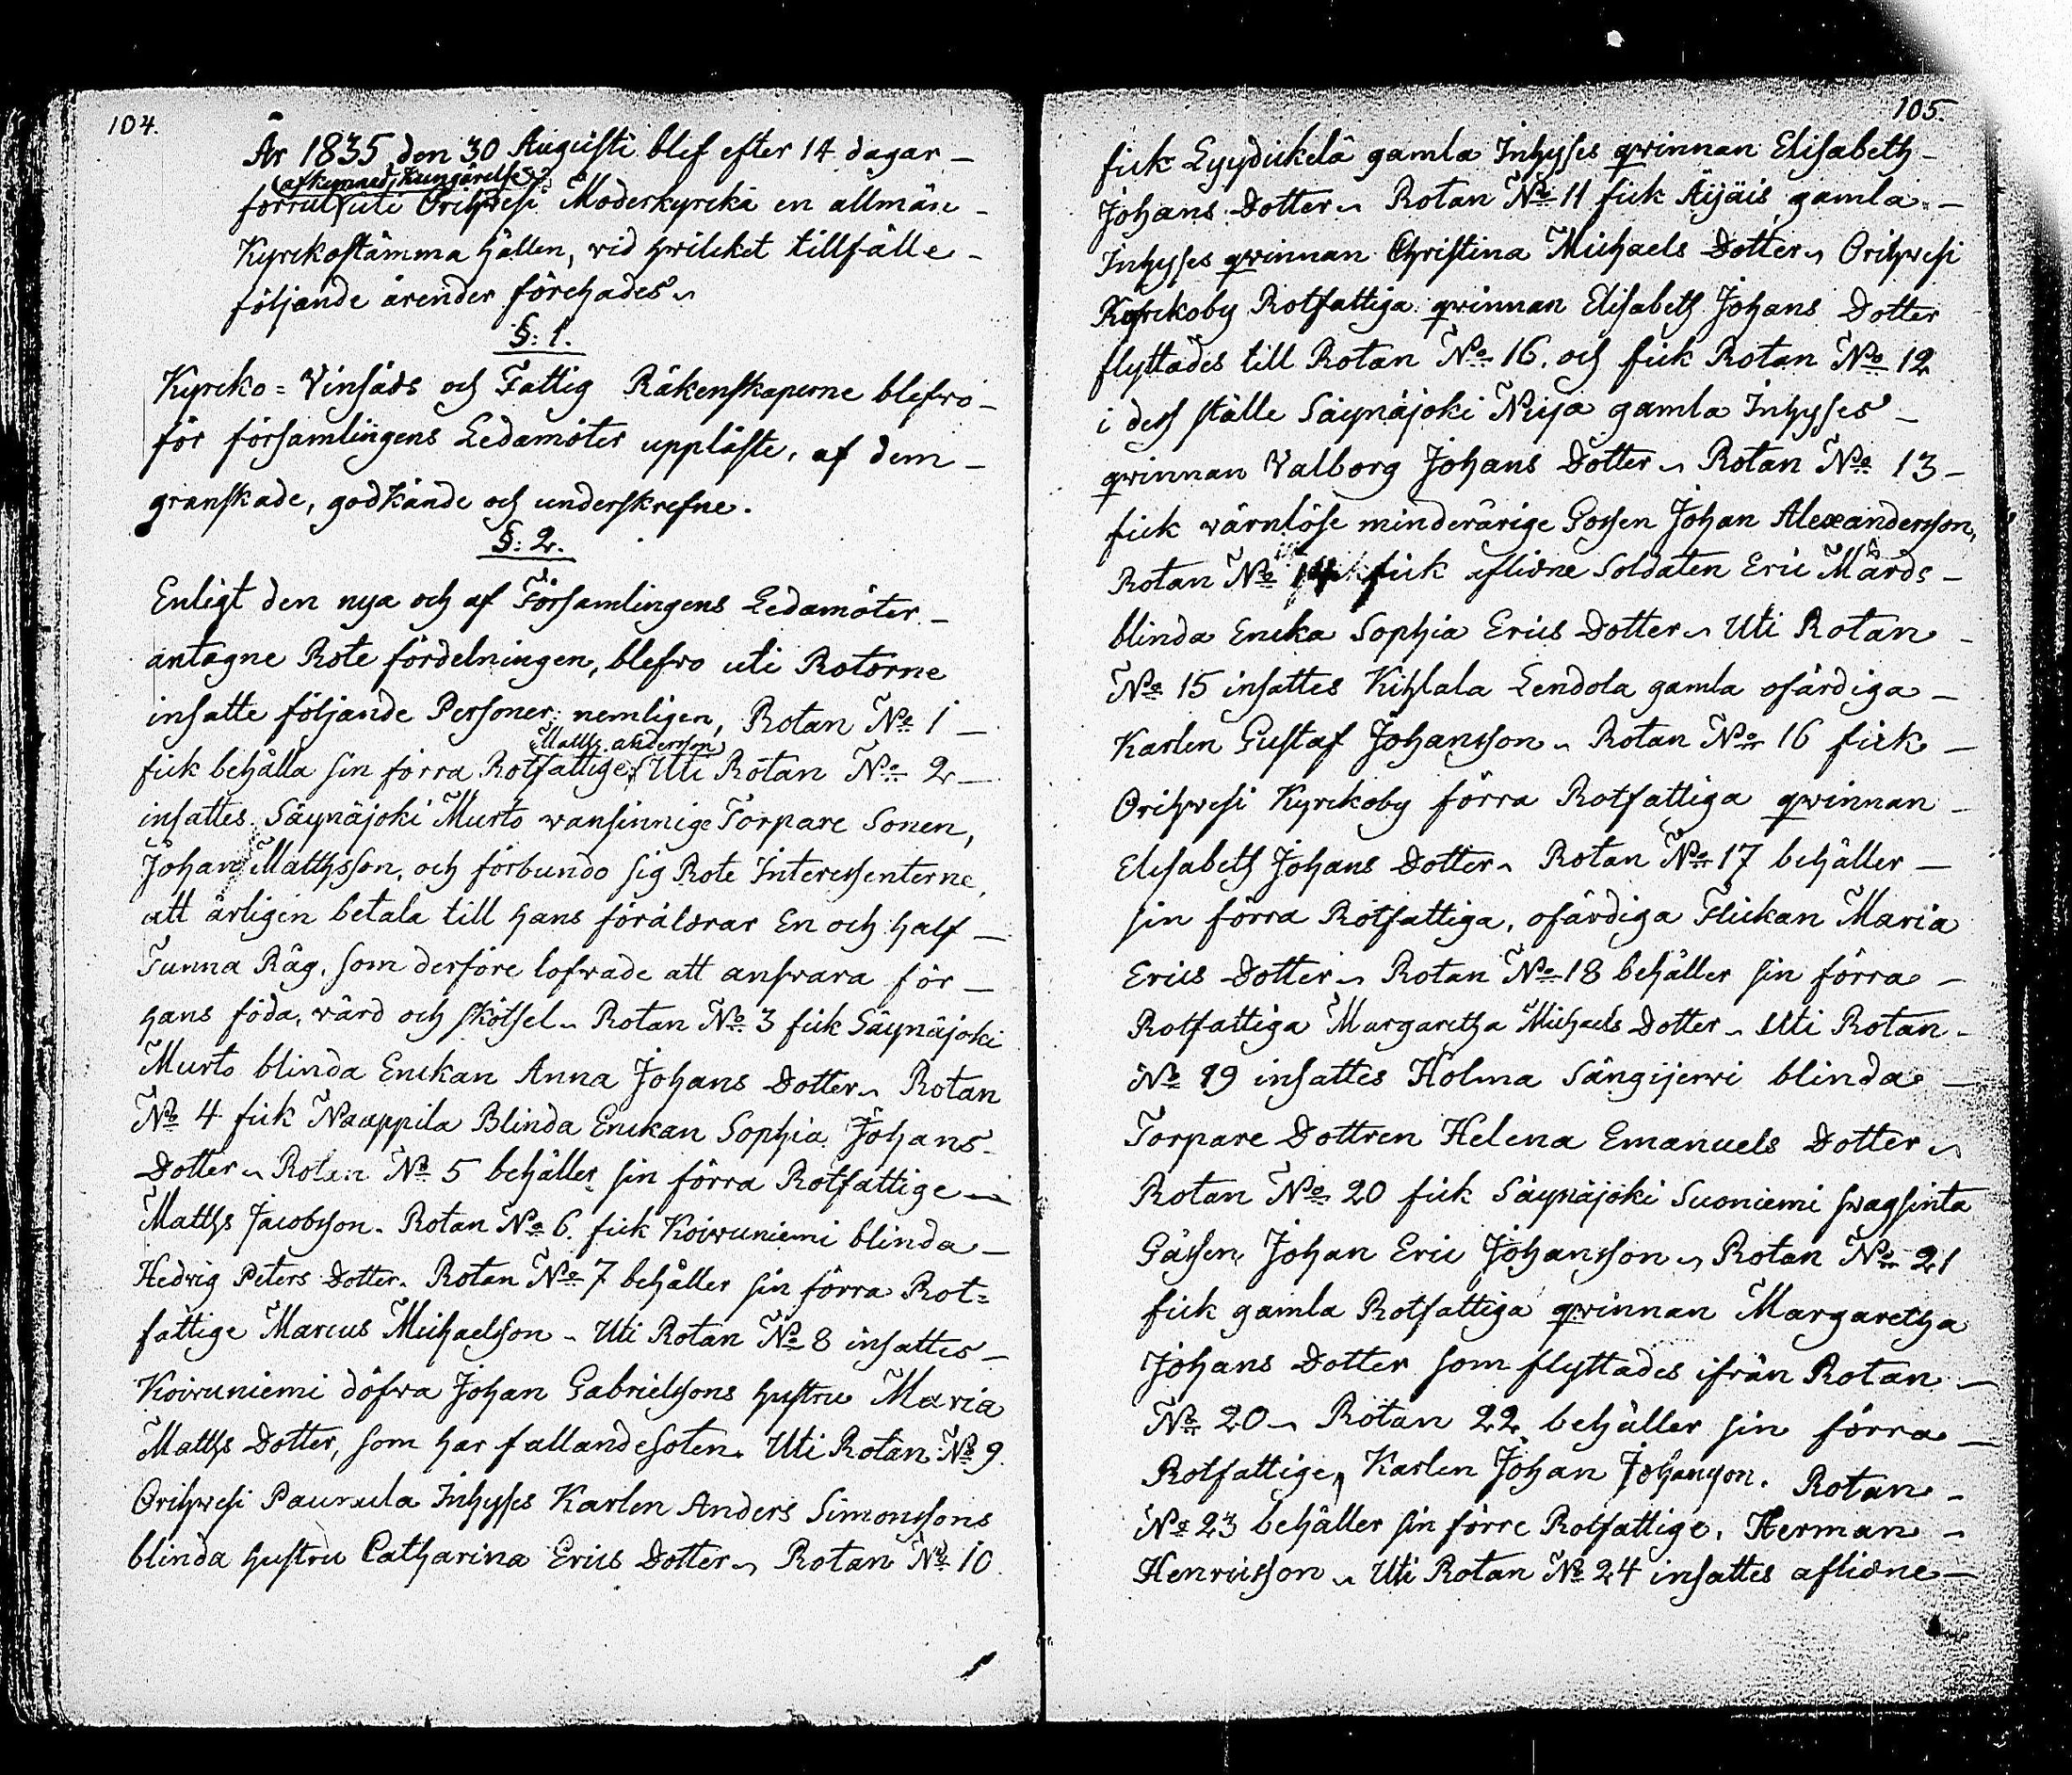 104.
År 1835 den 30 Augusti blef efter 14 dagar –
(afkunnad kungörelse)
förrut uti Orihwesi Moderkyrcka en allmän –
Kyrckostämma hållen, vid hwilcket tillfälle –
följande ärender förehades ~
§: 1.
Kyrcko= Vinsäds och Fattig Räkenskaperne blefwo –
för församlingens Ledamöter uppläste, af dem –
granskade, godkände och underskrefne.
§: 2.
Enligt den nya och af Församlingens Ledamöter –
antagne Rote fördelningen, blefwo uti Rotorne
insatte följande Personer; nemligen, Rotan No 1 –
Matths Andersson
fick behålla sin förra Rotfattige, Uti Rotan No 2 –
insattes Säynäjoki Murto wansinnige Torpare Sonen,
Johan Matthsson, och förbundo sig Rote Interessenterne,
att årligen betala till hans föräldrar En och half –
Tunna Råg, som derföre lofwade att answara för –
hans föda, wård och skötsel ~ Rotan No 3 fick Säynäjoki
Murto blinda Enckan Anna Johans Dotter ~ Rotan
No 4 fick Naappila Blinda Enckan Sophia Johans –
Dotter ~ Rotan No 5 behåller sin förra Rotfattige –
Matths Jacobsson. Rotan No 6. fick Koiwuniemi blinda –
Hedvig Peters Dotter. Rotan No 7 behåller sin förra Rot=
fattige Marcus Michaelsson – Uti Rotan No 8 insattes –
Koiwuniemi döfwa Johan Gabrielssons hustru Maria
Matths Dotter, som har fallandesoten. Uti Rotan No 9.
Orihwesi Paunula Inhyses Karlen Anders Simonssons
blinda hustru Catharina Erics Dotter ~ Rotan No 10
105.
fick Lyydickelä gamla Inhyses qwinnan Elisabeth –
Johans Dotter ~ Rotan No 11 fick Äijäis gamla –
Inhyses qwinnan Christina Michaels Dotter ~ Orihwesi
Kyrckoby Rotfattiga qwinnan Elisabeth Johans Dotter
flyttades till Rotan No 16. och fick Rotan No 12
i dess ställe Säynäjoki Reija gamla Inhyses –
qwinnan Valborg Johans Dotter ~ Rotan No 13 –
fick värnlöse minderårige Gossen Johan Alexandersson,
Rotan No 14 fick aflidne Soldaten Eric Mårds –
blinda Encka Sophia Erics Dotter ~ Uti Rotan –
No 15 insattes Kihlala Lendola gamla ofärdiga –
Karlen Gustaf Johansson ~ Rotan No 16 fick –
Orihwesi Kyrckoby förra Rotfattiga qwinnan –
Elisabeth Johans Dotter ~ Rotan No 17 behåller –
sin förra Rotfattiga, ofärdiga Flickan Maria
Erics Dotter ~ Rotan No 18 behåller sin förra –
Rotfattiga Margaretha Michaels Dotter ~ Uti Rotan –
No 19 insattes Holma Sängijerwi blinda –
Torpare Dottren Helena Emanuels Dotter ~
Rotan No 20 fick Säynäjoki Suoniemi swagsinta
Gåssen Johan Eric Johansson ~ Rotan No 21
fick gamla Rotfattiga qwinnan Margaretha
Johans Dotter som flyttades ifrån Rotan –
No 20 ~ Rotan 22 behåller sin förra –
Rotfattige, Karlen Johan Johansson. Rotan –
No 23 behåller sin förre Rotfattige, Herman –
Henricsson ~ Uti Rotan No 24 insattes aflidne –